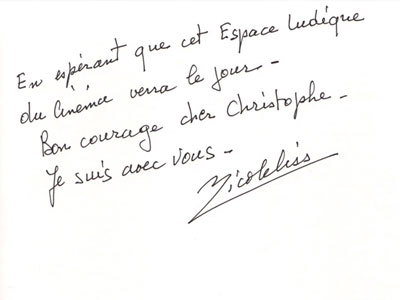 En espérant que cet Espace Ludique
du Cinéma verra le jour -
Bon courage cher Christophe -
Je suis avec vous -